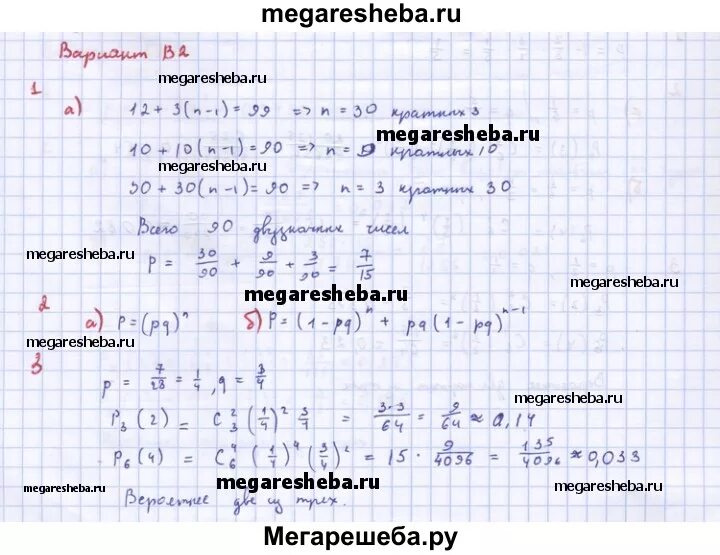 megaresheba.ru
Вариант В2
megaresheba.ru
1
а) 12 + 3(n-1) = 99 => n = 30 кратных 3
megaresheba.ru
10 + 10(n-1) = 90 => n = 9 кратных 10
megaresheba.ru
30 + 30(n-1) = 90 => n = 3 кратных 30
Всего 90 двузначных чисел
megaresheba.ru
P = 30/90 + 9/90 + 3/90 = 7/15
megaresheba.ru
megaresheba.ru
2
а) P = (pq)^n б) P = (1-pq)^n + pq(1-pq)^(n-1)
megaresheba.ru
3
p = 7/28 = 1/4, q = 3/4
megaresheba.ru
P₃(2) = C₃² (1/4)² 3/4 = 3·3/64 = 9/64 ≈ 0,14
P₆(4) = C₆⁴ (1/4)⁴ (3/4)² = 15 · 9/4096 = 135/4096 ≈ 0,033
megaresheba.ru
megaresheba.ru
megaresheba.ru
Вероятнее две из трех.
Мегарешеба.ру